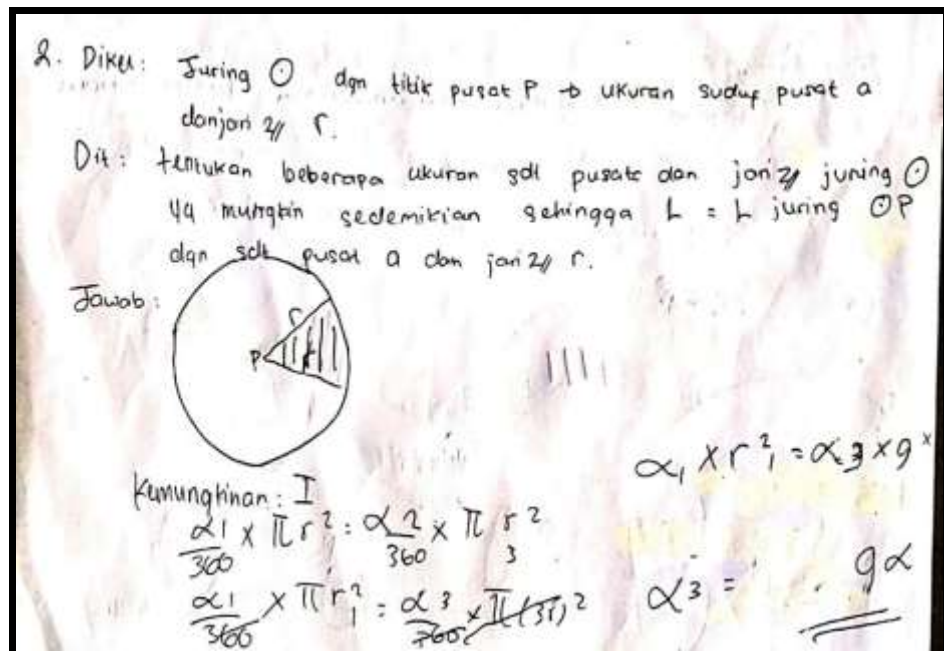 2. Diket: Juring ⊙ dgn titik pusat P → ukuran sudut pusat a
dan jari 2// r.
Dit: tentukan beberapa ukuran sdt pusate dan jari 2// juring ⊙
yg mungkin sedemikian sehingga L = L juring ⊙P
dgn sdt pusat a dan jari 2// r.
Jawab:
r
P
Kemungkinan: I
α1/360 × πr² = α2/360 × π r²
3
α1/360 × πr₁² = α3/360 × π(3r)²
α₁ × r₁² = α3 × 9
α3 = 9α